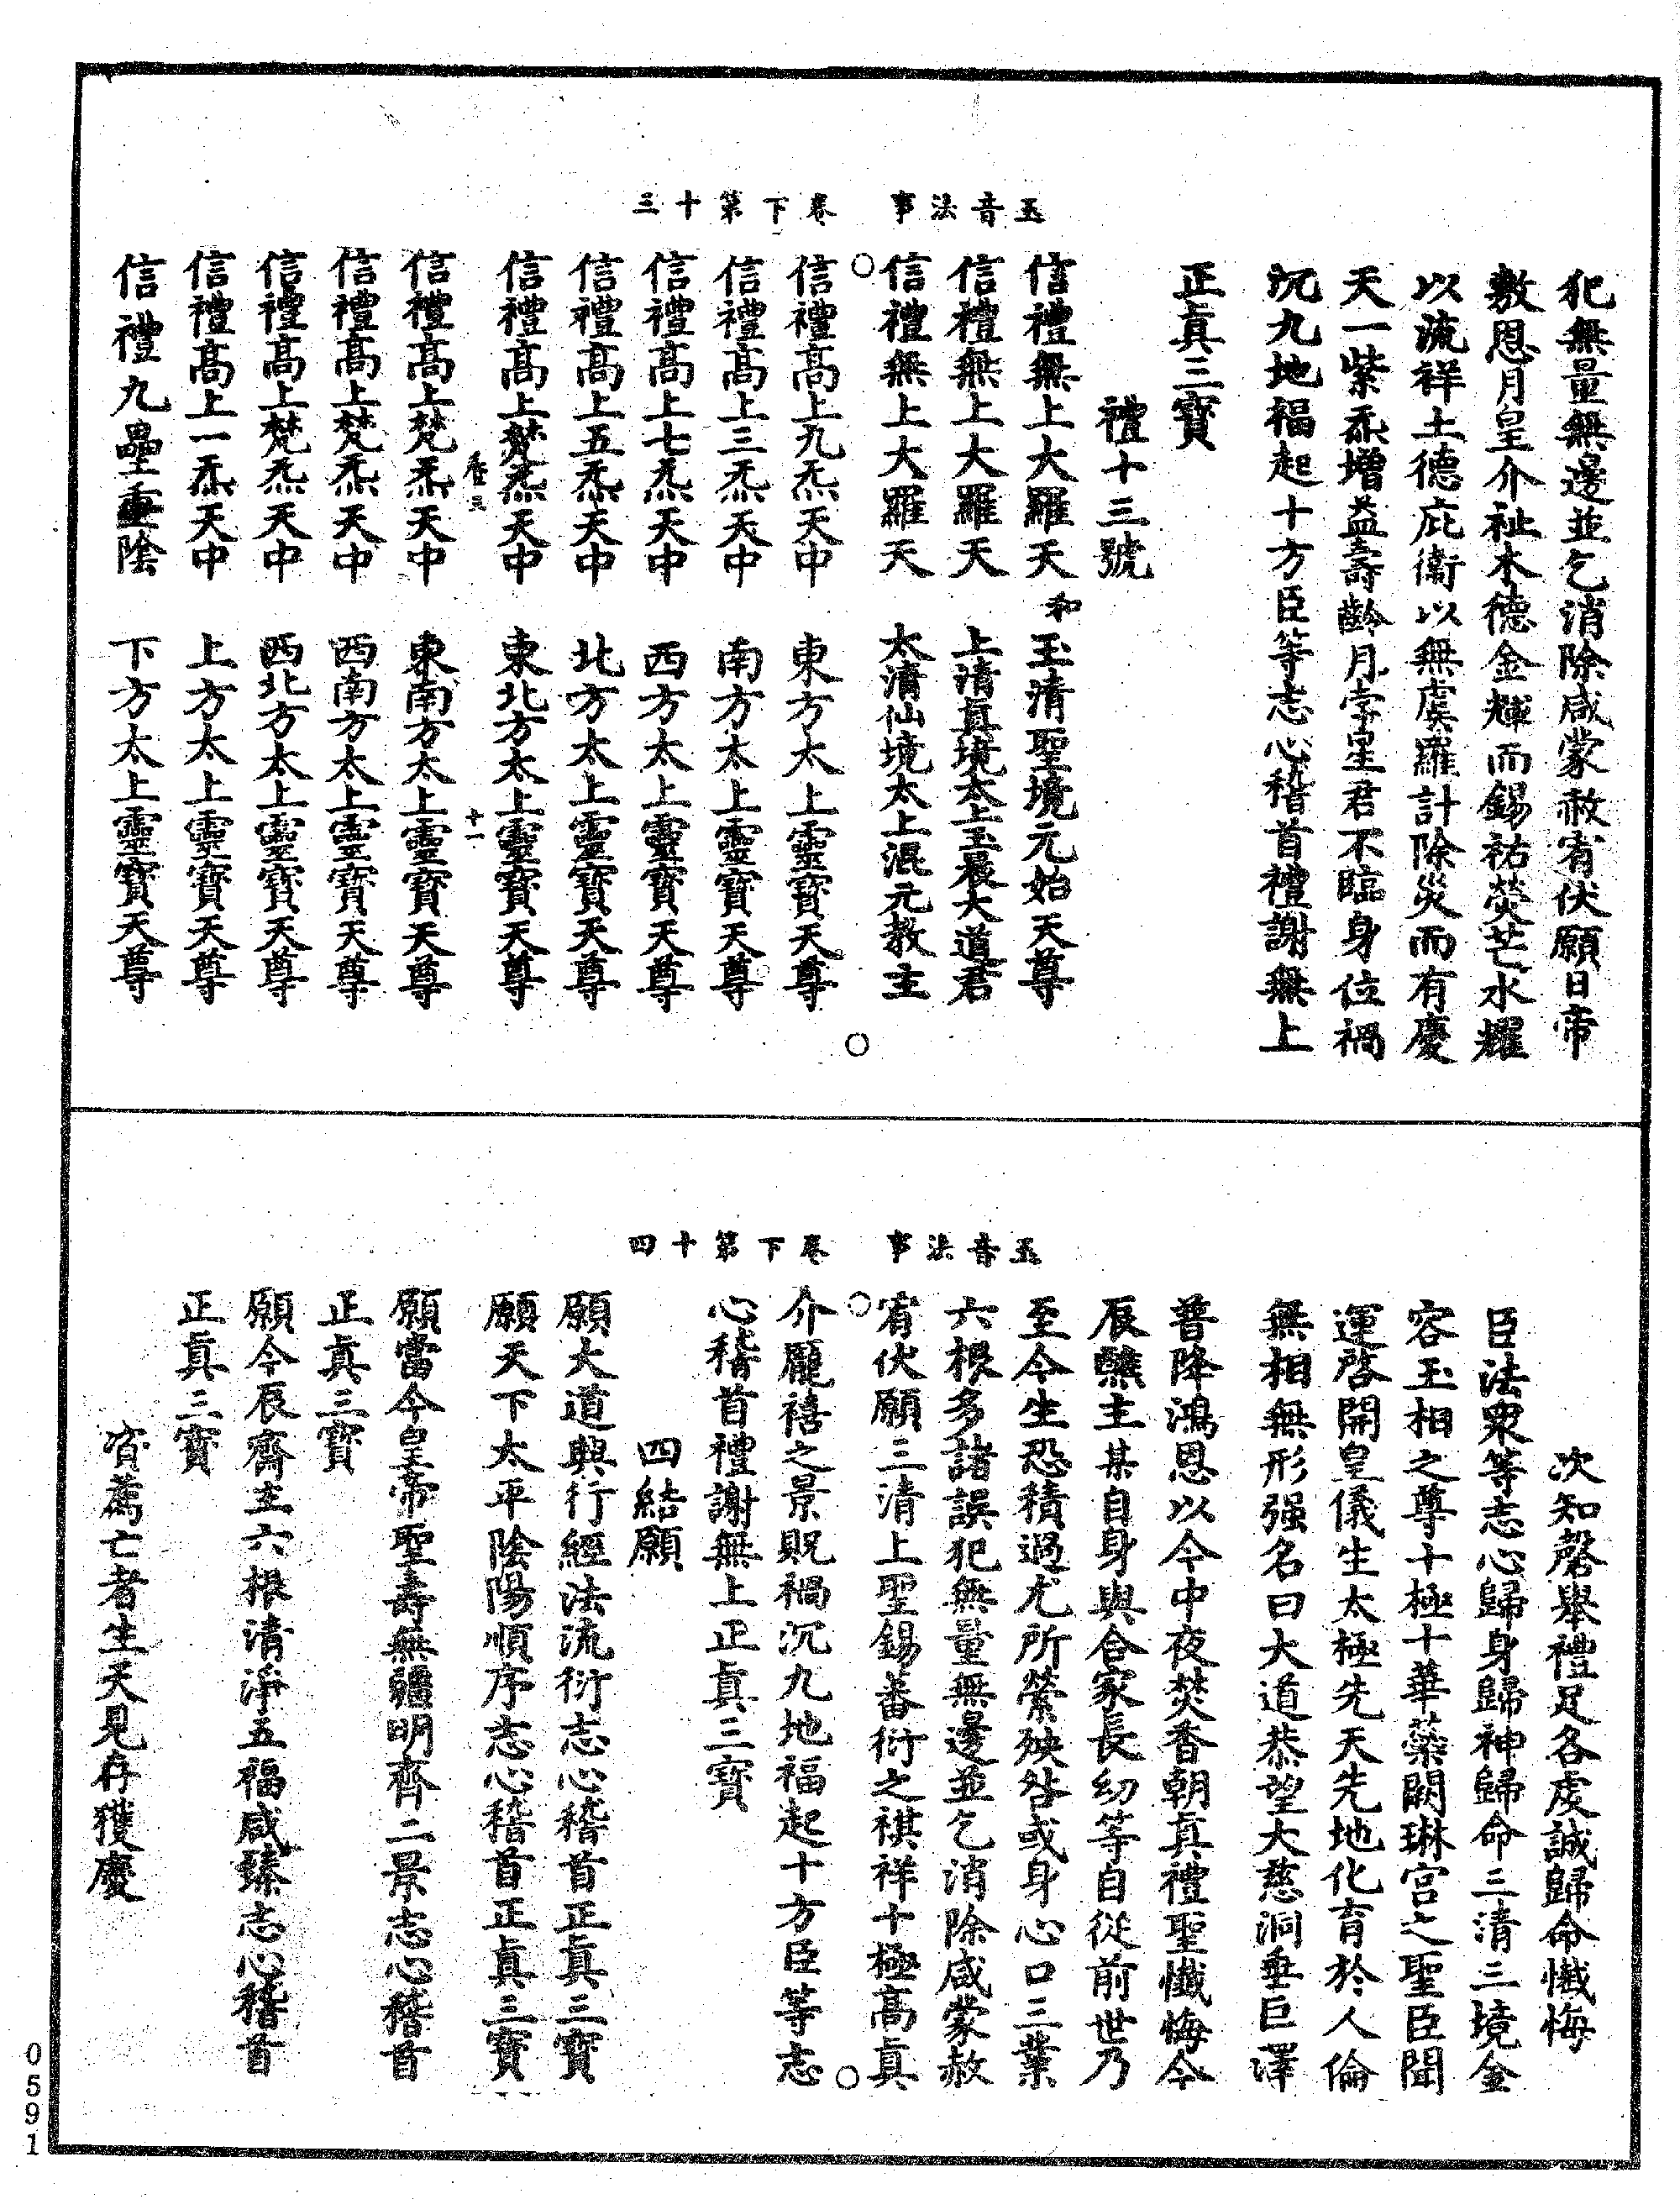 玉音法事　卷下第十三
犯無量無邊並乞消除咸蒙赦宥伏願日帝
敷恩月皇介祉木德金輝而錫祐熒芒水耀
以流祥土德庇衞以無虞羅計除災而有慶
天一紫炁增益壽齡月孛星君不臨身位禍
沉九地福起十方臣等志心稽首禮謝無上
正真三寶
禮十三號
信禮無上大羅天　和　玉清聖境元始天尊
信禮無上大羅天　上清真境太上玉晨大道君
信禮無上大羅天　太清仙境太上混元教主
○　○
信禮高上九炁天中　東方太上靈寶天尊
信禮高上三炁天中　南方太上靈寶天尊
信禮高上七炁天中　西方太上靈寶天尊
信禮高上五炁天中　北方太上靈寶天尊
信禮高上梵炁天中　東北方太上靈寶天尊
十一
信禮高上梵炁天中　東南方太上靈寶天尊
信禮高上梵炁天中　西南方太上靈寶天尊
信禮高上梵炁天中　西北方太上靈寶天尊
信禮高上一炁天中　上方太上靈寶天尊
信禮九壘重陰　下方太上靈寶天尊
玉音法事　卷下第十四
次知磬舉禮足各虔誠歸命懺悔
臣法眾等志心歸身歸神歸命三清三境金
容玉相之尊十極十華蘂闕琳宮之聖臣聞
運啓開皇儀生太極先天先地化育於人倫
無相無形强名曰大道恭望大慈洞垂巨澤
普降鴻恩以今中夜焚香朝真禮聖懺悔今
辰醮主某自身與合家長幼等自從前世乃
至今生恐積過尤所縈殃咎或身心口三業
六根多諸誤犯無量無邊並乞消除咸蒙赦
宥伏願三清上聖錫蕃衍之祺祥十極高真
○　○
介龐禧之景貺禍沉九地福起十方臣等志
心稽首禮謝無上正真三寶
四結願
願大道興行經法流衍志心稽首正真三寶
願天下太平陰陽順序志心稽首正真三寶
願當今皇帝聖壽無疆明齊二景志心稽首
正真三寶
願今辰齋主六根清淨五福咸臻志心稽首
正真三寶
資薦亡者生天見存獲慶
0591